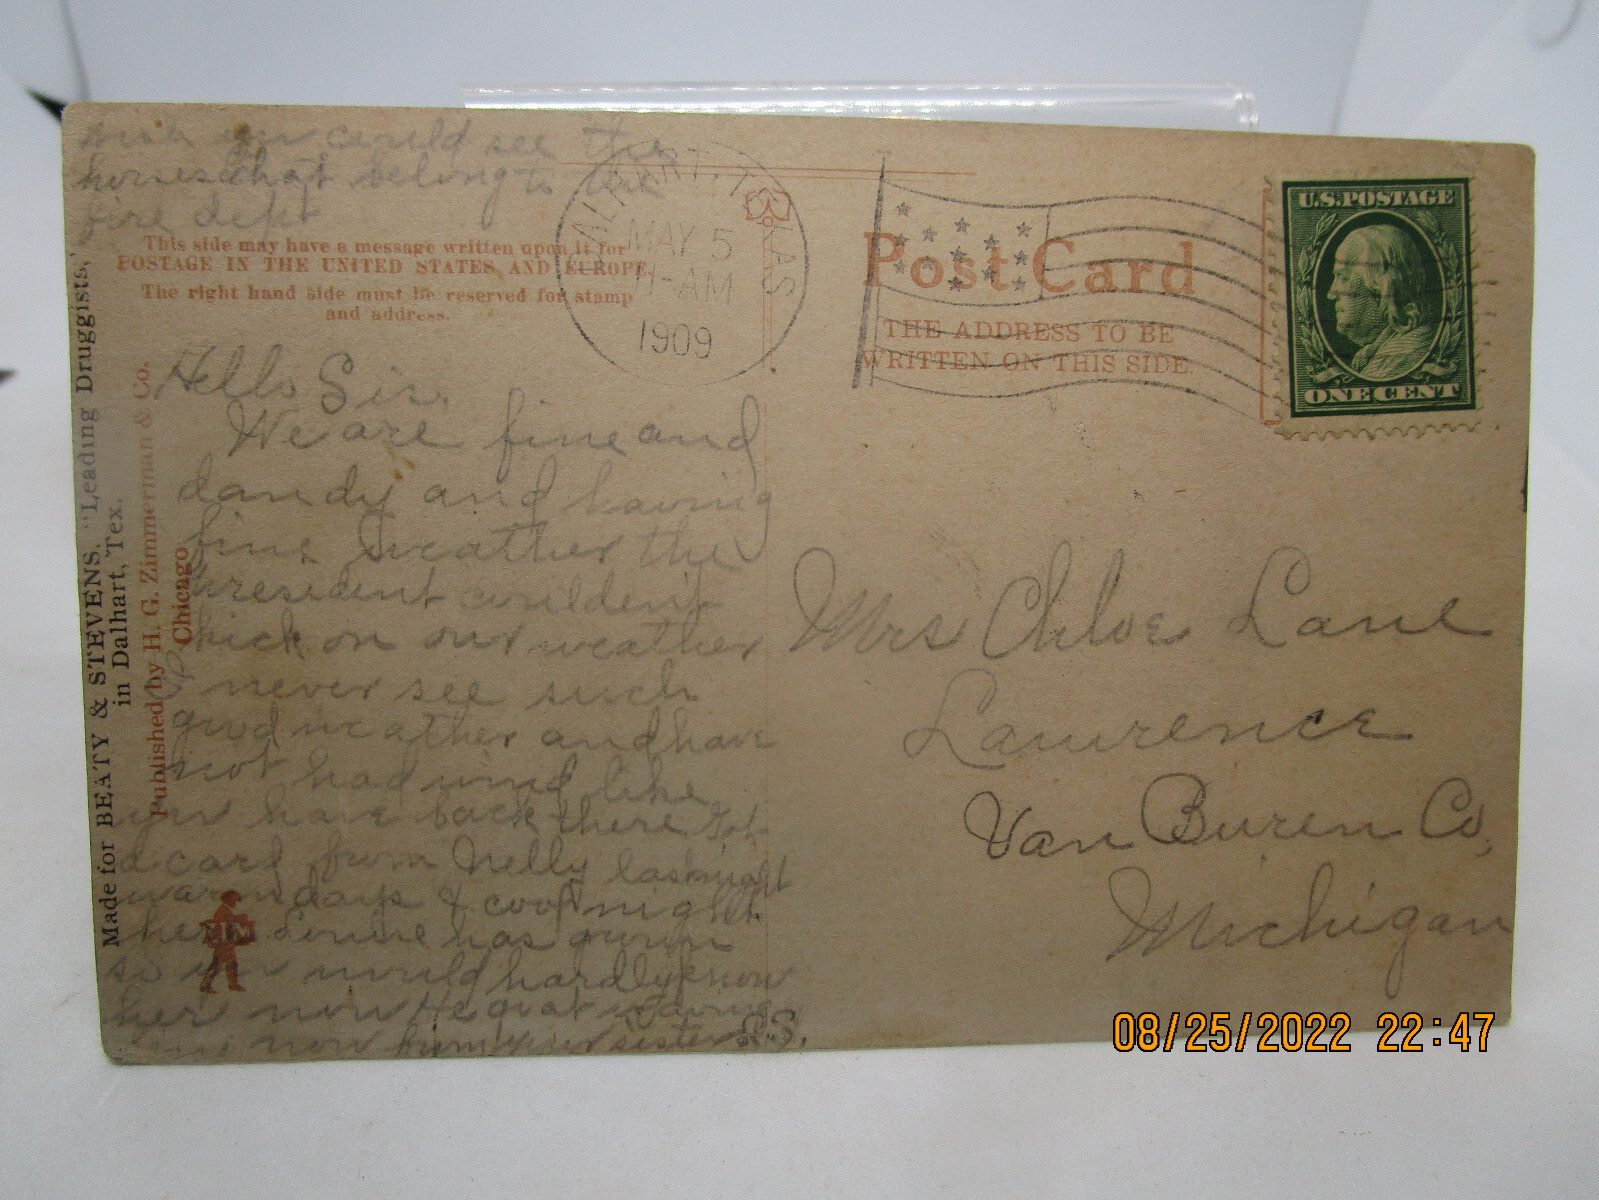 you could see the
horses that belong to the
fire dept
This side may have a message written upon it for
POSTAGE IN THE UNITED STATES AND EUROPE.
The right hand side must be reserved for stamp
and address.
DALHART, TEXAS
MAY 5
11-AM
1909
Post Card
THE ADDRESS TO BE
WRITTEN ON THIS SIDE.
U.S. POSTAGE
ONE CENT
Made for BEATY & STEVENS. "Leading Druggists,"
in Dalhart, Tex.
Published by H. G. Zimmerman & Co.
Chicago
Hello Sis.
We are fine and
dandy and having
fine weather the
President couldent
kick on our weather
I never see such
good weather and have
not had wind like
you have back there Got
a card from Nelly last night
warm days & cool night
here has grown
so you would hardly know
her now
now from your sister
Mrs Chloe Lane
Lawrence
Van Buren Co,
Michigan
08/25/2022 22:47